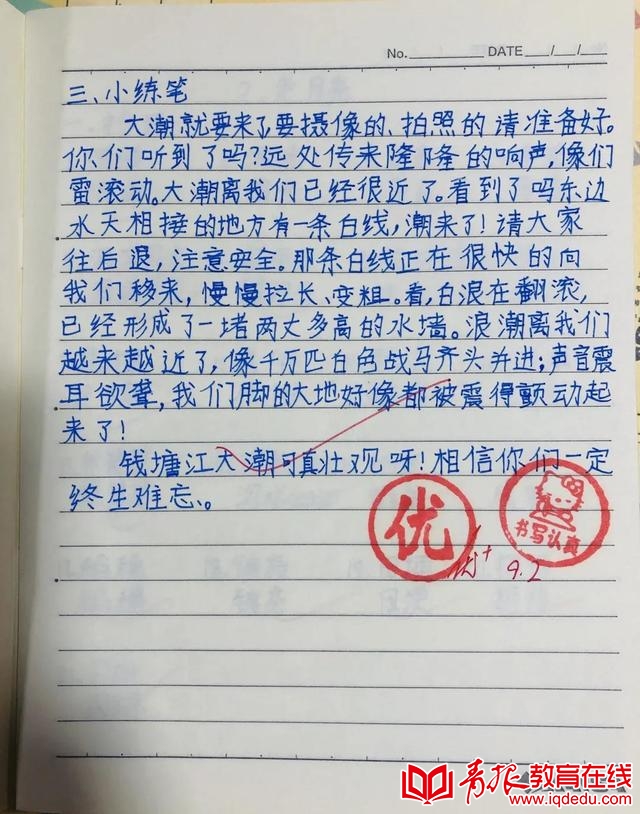 No.________ DATE __/__/__
三、小练笔
大潮就要来了,要摄像的、拍照的请准备好。
你们听到了吗?远处传来隆隆的响声,像们
雷滚动。大潮离我们已经很近了。看到了吗东边
水天相接的地方有一条白线,潮来了!请大家
往后退,注意安全。那条白线正在很快的向
我们移来,慢慢拉长、变粗。看,白浪在翻滚,
已经形成了一堵两丈多高的水墙。浪潮离我们
越来越近了,像千万匹白色战马齐头并进;声音震
耳欲聋,我们脚的大地好像都被震得颤动起
来了!
钱塘江大潮可真壮观呀!相信你们一定
终生难忘。
优
书写认真
优+ 9.2
青报教育在线
www.iqdedu.com